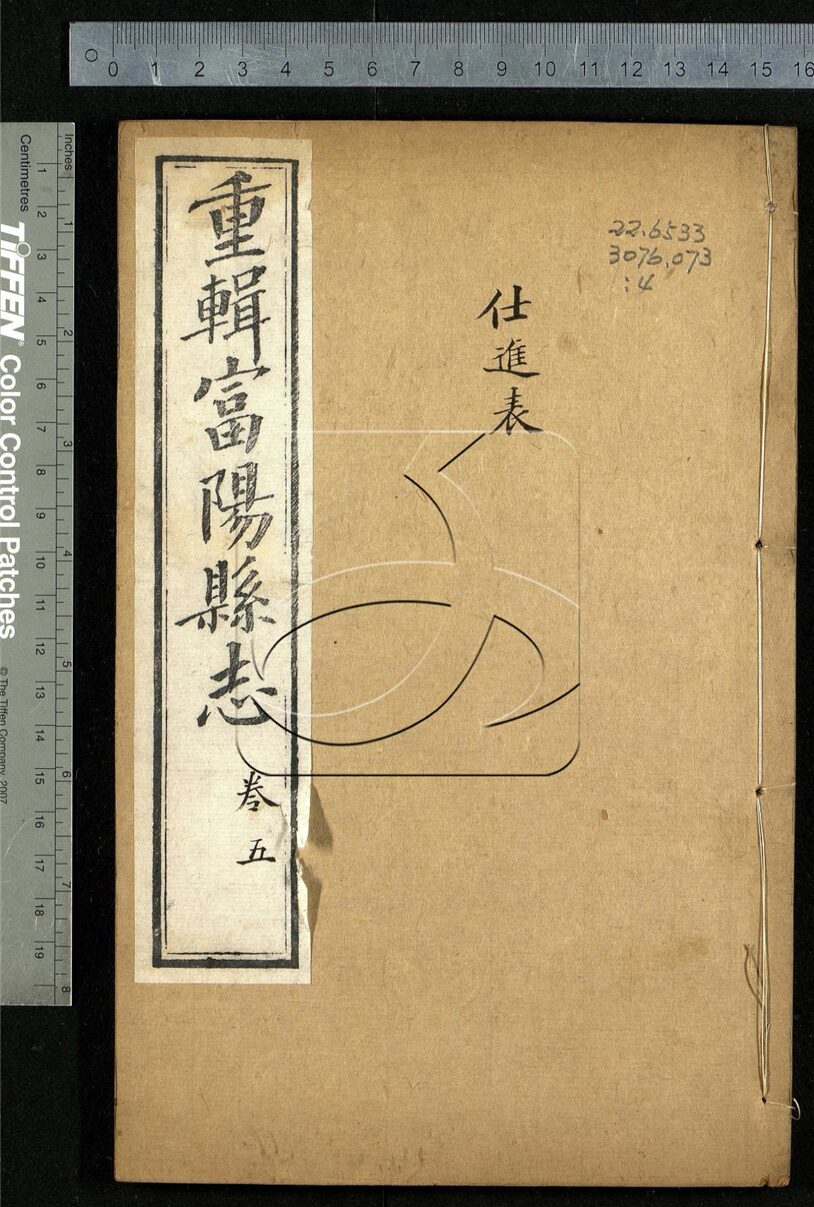 0 1 2 3 4 5 6 7 8 9 10 11 12 13 14 15 16
22.6533
3076.073
:4
仕進表
重輯富陽縣志
卷五
Inches
1 2 3 4 5 6 7 8
Centimetres
1 2 3 4 5 6 7 8 9 10 11 12 13 14 15 16 17 18 19
TIFFEN® Color Control Patches
© The Tiffen Company, 2007